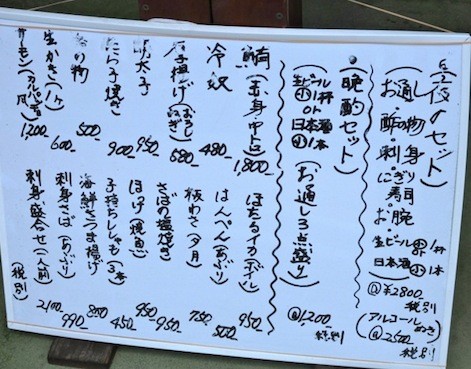 昼夜のセット
(お通し
酢の物
刺身
にぎり寿司
お椀
生ビール 1杯
日本酒 1本
@¥2800 税別
(アルコールぬき)
@2500 税別
晩酌セット
生ビール 1杯
or
日本酒 1本
(お通し3点盛り)
@1,200 税別
1,800
冷奴 480
子持揚げ 680
明太子 950
たら子焼き 900
酢の物 500
生かき(1ヶ) 600
サーモン 1,200
ほたるイカ 950
はんぺん(あぶり) 500
板わさ 750
さばの塩焼き 950
ほっけ焼魚 950
子持ちししゃも(3本) 450
海鮮さつま揚げ 800
刺身さば(あぶり) 990
刺身盛合せ(一人前) 2100
(税別)